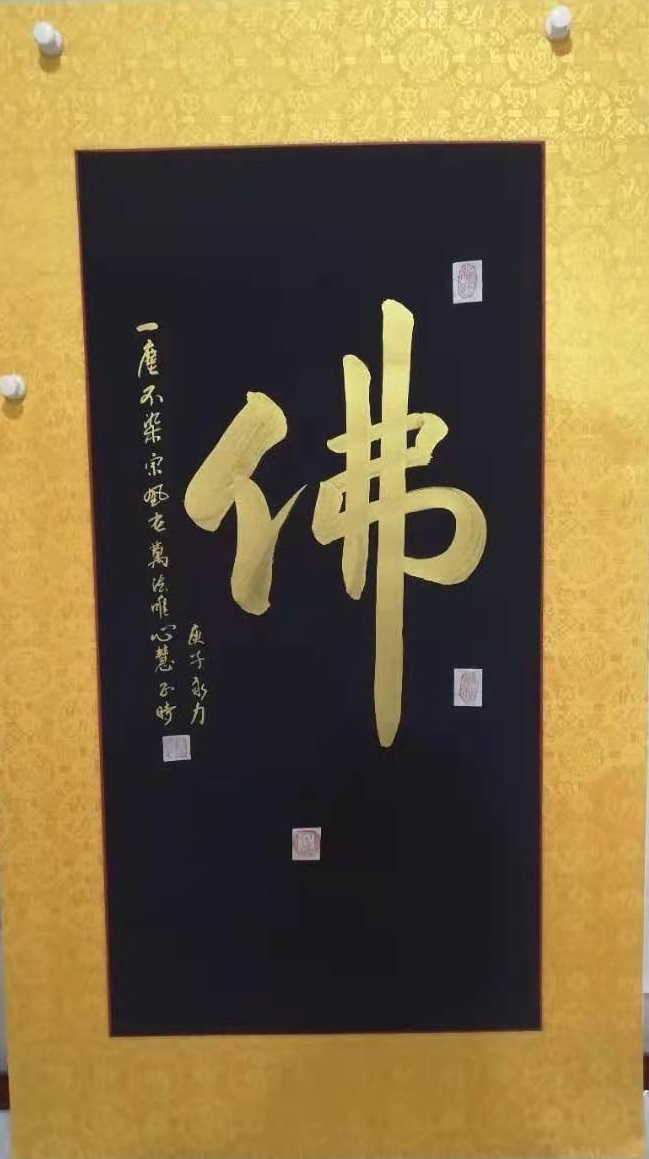 佛
一塵不染宗風在萬法唯心慧正時
庚子永力